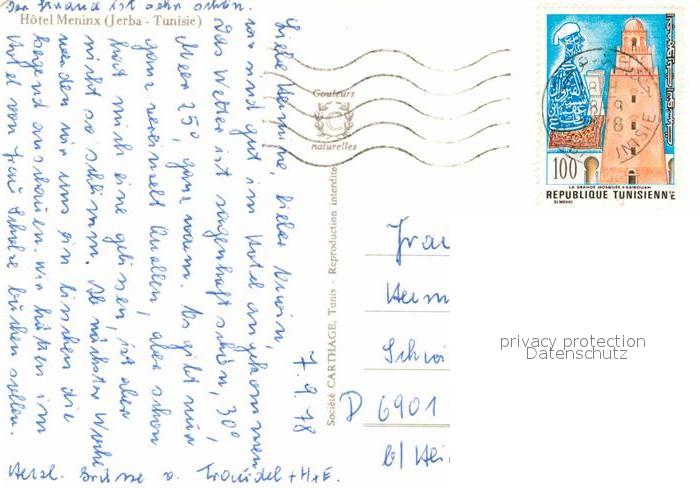 Hôtel Meninx (Jerba - Tunisie)
Couleurs
C
naturelles
Société CARTHAGE, Tunis - Reproduction interdite
7.9.78
Liebe Hermine, lieber Erwin,
wir sind gut im Hotel angekommen
das Wetter ist sagenhaft schön, 30°,
Meer 25°, ganz warm. Es gibt nur
ganz vereinzelt Quallen, aber schon
hat mich eine gebissen, ist aber
nicht so schlimm. Ab nächster Woche
werden wir uns ein bisschen die
Gegend anschauen. Wir hätten im
Hotel von Frau Scholze buchen sollen.
Der Strand ist sehr schön.
Herzl. Grüsse v. Traudel + H+E.
Frau
Herm
Schri
D 6901
b/ Hei
100
LA GRANDE MOSQUEE - KAIROUAN
REPUBLIQUE TUNISIENNE
TUNISIE
privacy protection
Datenschutz